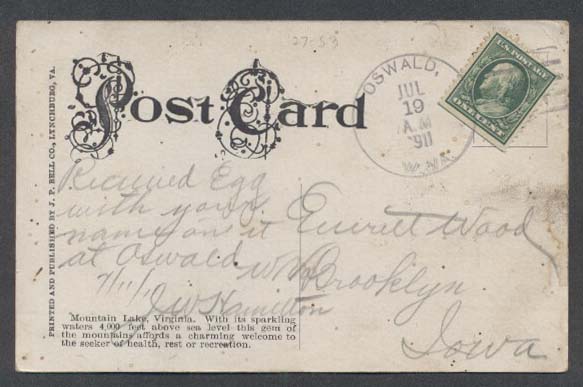 27-53
Post Card
OSWALD,
JUL
19
A.M
1911
W.VA.
U.S. POSTAGE
ONE CENT
PRINTED AND PUBLISHED BY J. P. BELL CO., LYNCHBURG, VA.
Received Egg
with your
name on it
at Oswald W Va
7/11/11
J W Hamilton
Everett Wood
Brooklyn
Iowa
Mountain Lake, Virginia. With its sparkling
waters 4,000 feet above sea level this gem of
the mountains affords a charming welcome to
the seeker of health, rest or recreation.